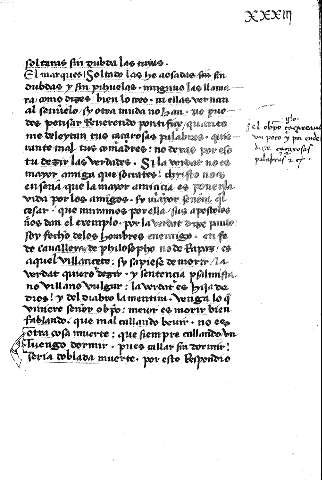 XXXIII
soltaras sin dubda las tuias.
El marques! Soltado las he aosadas sin sin
dubdas y sin pihuelas. ninguno las llama
ra como dizes bien lo tes. ni ellas vernan
al señuelo si otra muda no han. no pue
des pensar Reverendo pontifice, quanto
me deleytan tus sacrosas palabras. que
tanto mal tus comadres: no
tu dezir las verdades. Si la verdad no es
mayor amiga que socrates! christo nos
enseña que la mayor amicicia es poner la
vida por los amigos. si mayor señora que
cesar. que muramos por ella sus apostolos
nos dan el exemplo. por la verdad dize paulo
soy fecho de los hombres enemigo. en fe
de cavallero de philosopho no de Rapaz. es
aquel villancete: si supiese de morir la
verdat quiero dezir. y sentencia psalmista
no villano vulgar: la verdat es hija de
dios! y del diablo la mentira. venga lo q
viniere señor obpo: meior es morir bien
fablando. que mal callando bevir. no es
otra cosa muerte: que siempre callando un
luengo dormir. pues callar sin dormir!
seria doblada muerte. por esto Respondio
glo.
El obpo
un poco y por ende
dize sacrosas
palabras